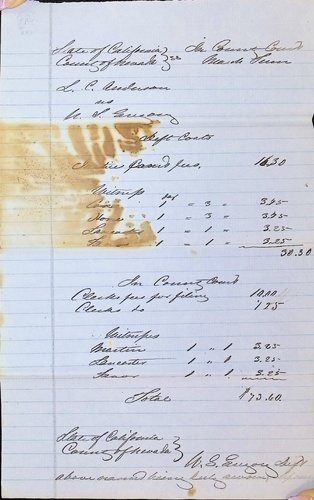 State of California } SS In County Court
County of Nevada } March Term
L. C. Anderson
vs
Deft Costs
fees, 16.30
Witness
1 " 3 " 3.45
1 " 3 " 3.45
Lancaster 1 " 1 " 3.25
1 " 1 " 3.25
30.30
In County Court
Clerks fees for filing 10.00
Clerks do 1.75
Witnesses
Martin 1 " 1 3.25
Lancaster 1 " 1 3.25
1 " 1 3.25
Total $73.60
State of California }
County of Nevada } W. S. Deft
above named being duly sworn